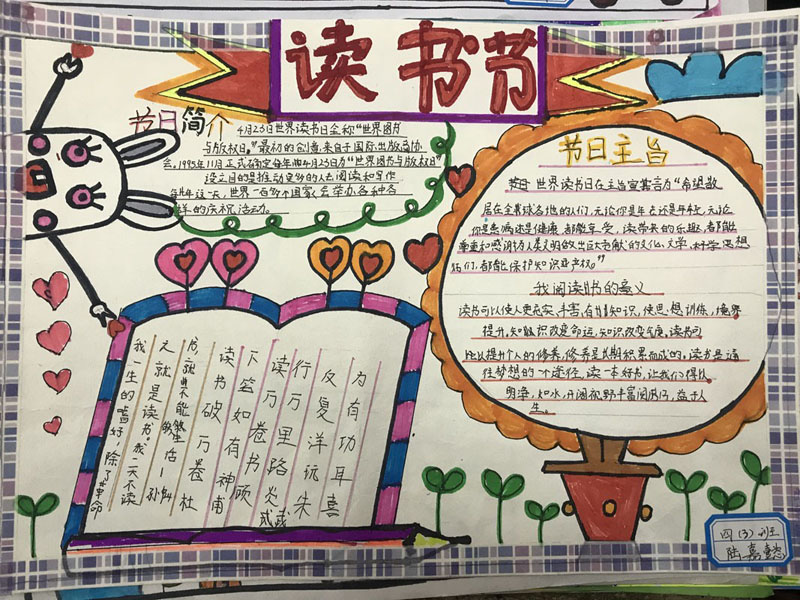 读书节
节日简介
4月23日世界读书日全称“世界图书
与版权日。”最初的创意来自于国际出版商协
会。1995年11月正式确定每年的4月23日为“世界图书与版权日”
设立目的是推动更多的人去阅读和写作
每年这一天,世界一百多个国家会举办各种各
样的庆祝活动。
节日主旨
世界读书日在主旨宣言为“希望散
居在全球各地的人们,无论你是年老还是年轻,无论
你是患病还是健康,都能享受,读带来的乐趣,都能
尊重和感谢为人类文明做出巨大贡献的文化、文学、科学思想
们,都能保护知识产权。”
我阅读书的意义
读书可以使人更充实,丰富,有增知识,使思想训练,境界
提升,知识改变命运,知识改变气质。读书可
以提升个人的修养,修养是长期积累而成的。读书是通
往梦想的一个途径,读一本好书,让我们得以
明净如水,开阔视野丰富阅历,益于人
生。
我一生的嗜好,除了革命
就是读书。我一天不读
就不能够生活—孙
读书破万卷 杜
下笔如有神 甫
读万卷书 顾
行万里路 炎武
反复洋玩 朱
为有功耳 熹
四(3)班
陆嘉懿